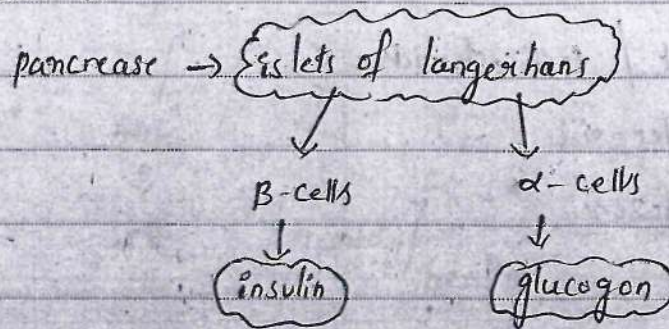 pancrease → islets of langerihans
β-cells α-cells
insulin glucogon